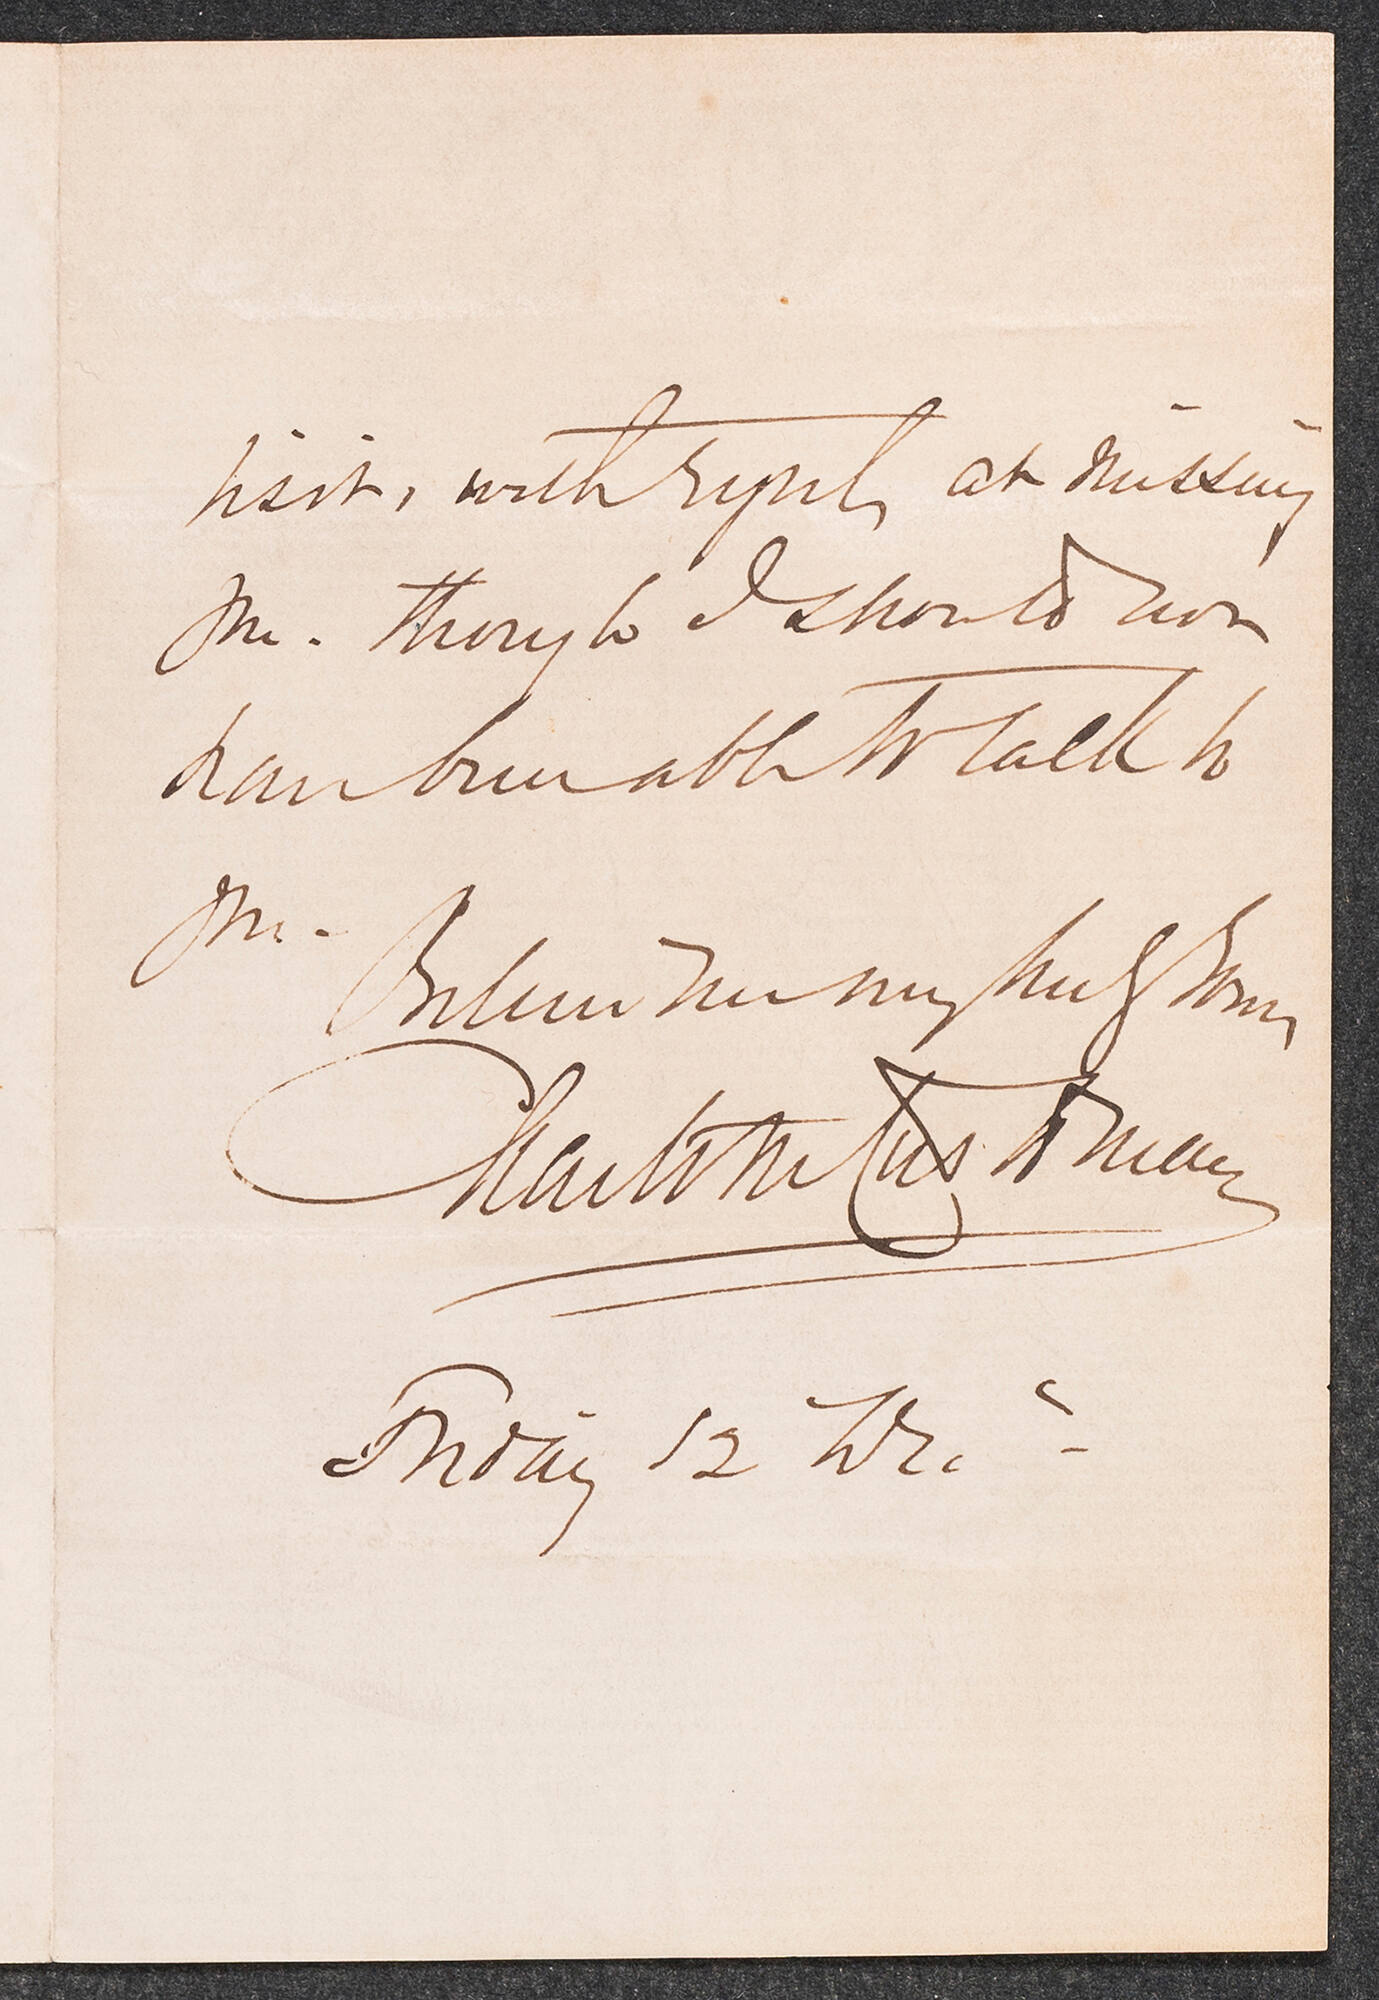 visit, with regrets, at missing
me. though I should not
have been able to talk to
me.
Believe me my truly Yours,
Charlotte Cushman
Friday 12 Dec.